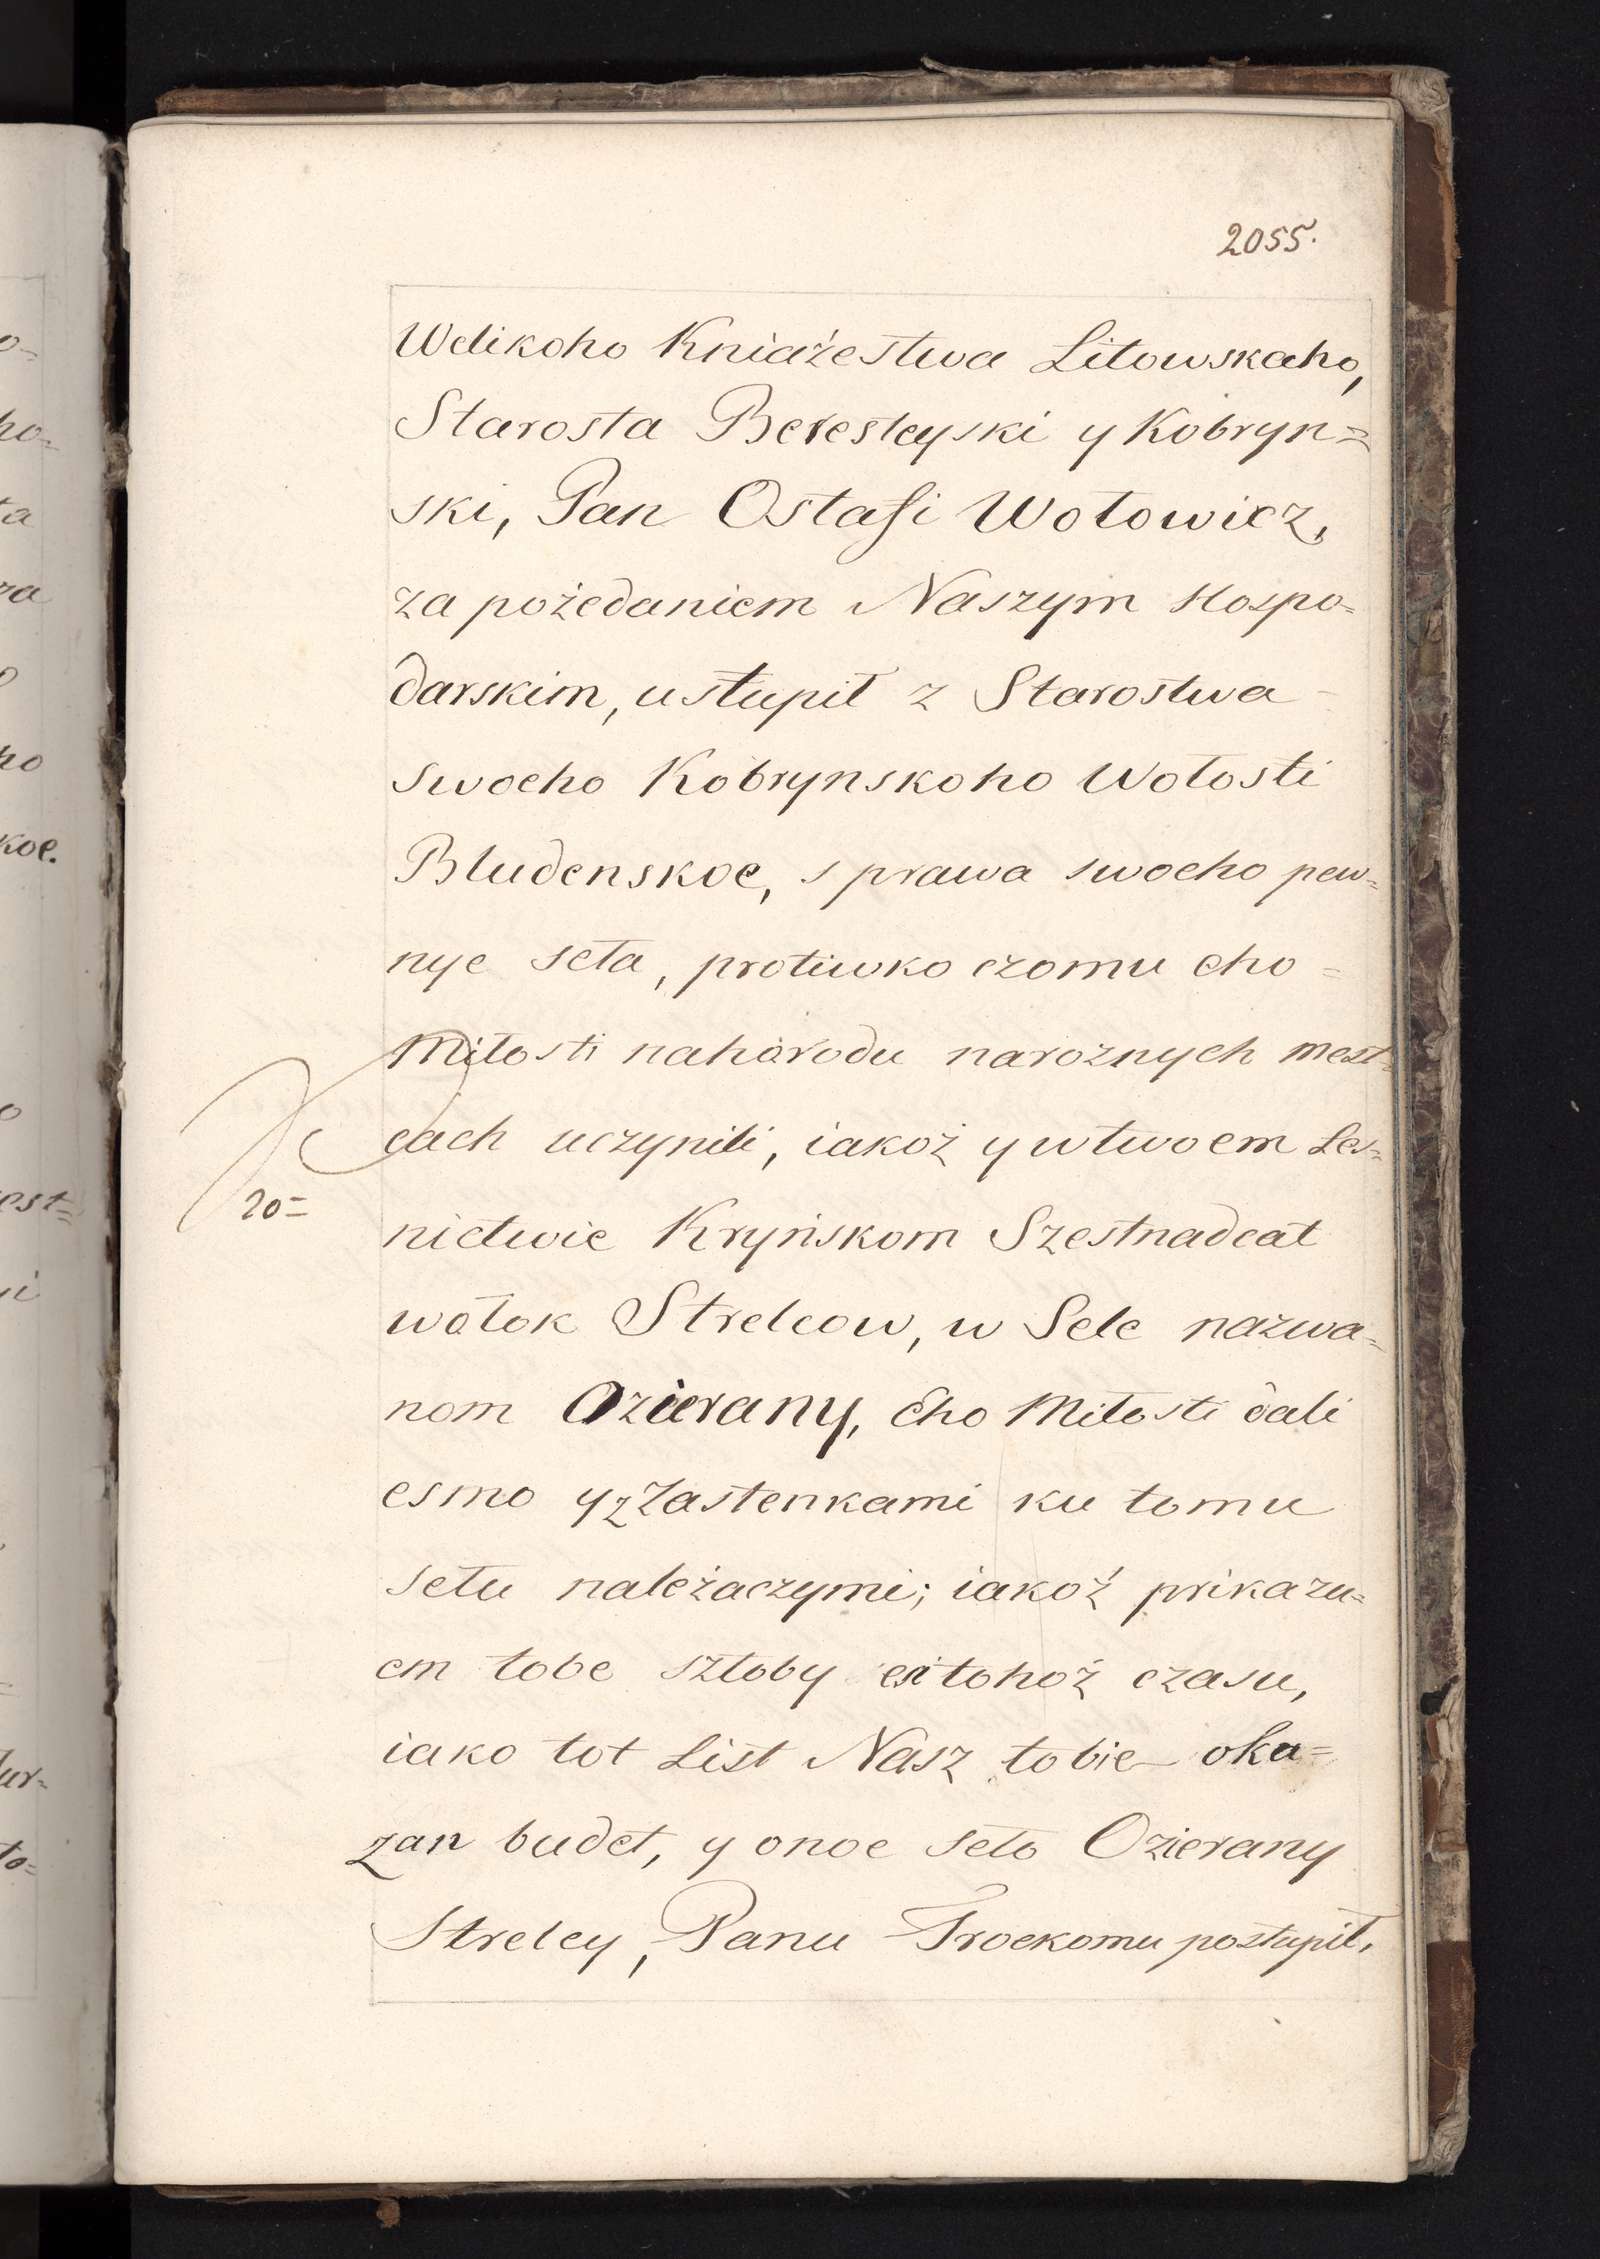 2055.
Welikoho Kniaźestwa Litowskaho,
Starosta Beresteyski y Kobryn=
ski, Pan Ostafi Wołowicz,
za pożedaniem Naszym Hospo=
darskim, ustupił z Starostwa
swoeho Kobrynskoho Wołosti
Bludenskoe, s prawa swoeho pew=
nye seła, protiwko czomu eho=
Miłosti nahorodu naroznych mest=
cach uczynili, iakoż y w twoem Les=
20=
nictwie Kryńskom Szestnadcat
wołok Strelcow, w Sele nazwa=
nom Ozierany, Eho Miłosti dali
esmo y z Zastenkami ku tomu
sełu należaczymi; iakoż prikazu=
em tobe sztoby tohoż czasu,
iako tot List Nasz tobie oka=
zan budet, y onoe seło Ozierany
Strelcy, Panu Trockomu postupił,
o=
ho=
ta
za
ho
koe.
est=
i
ur=
to=